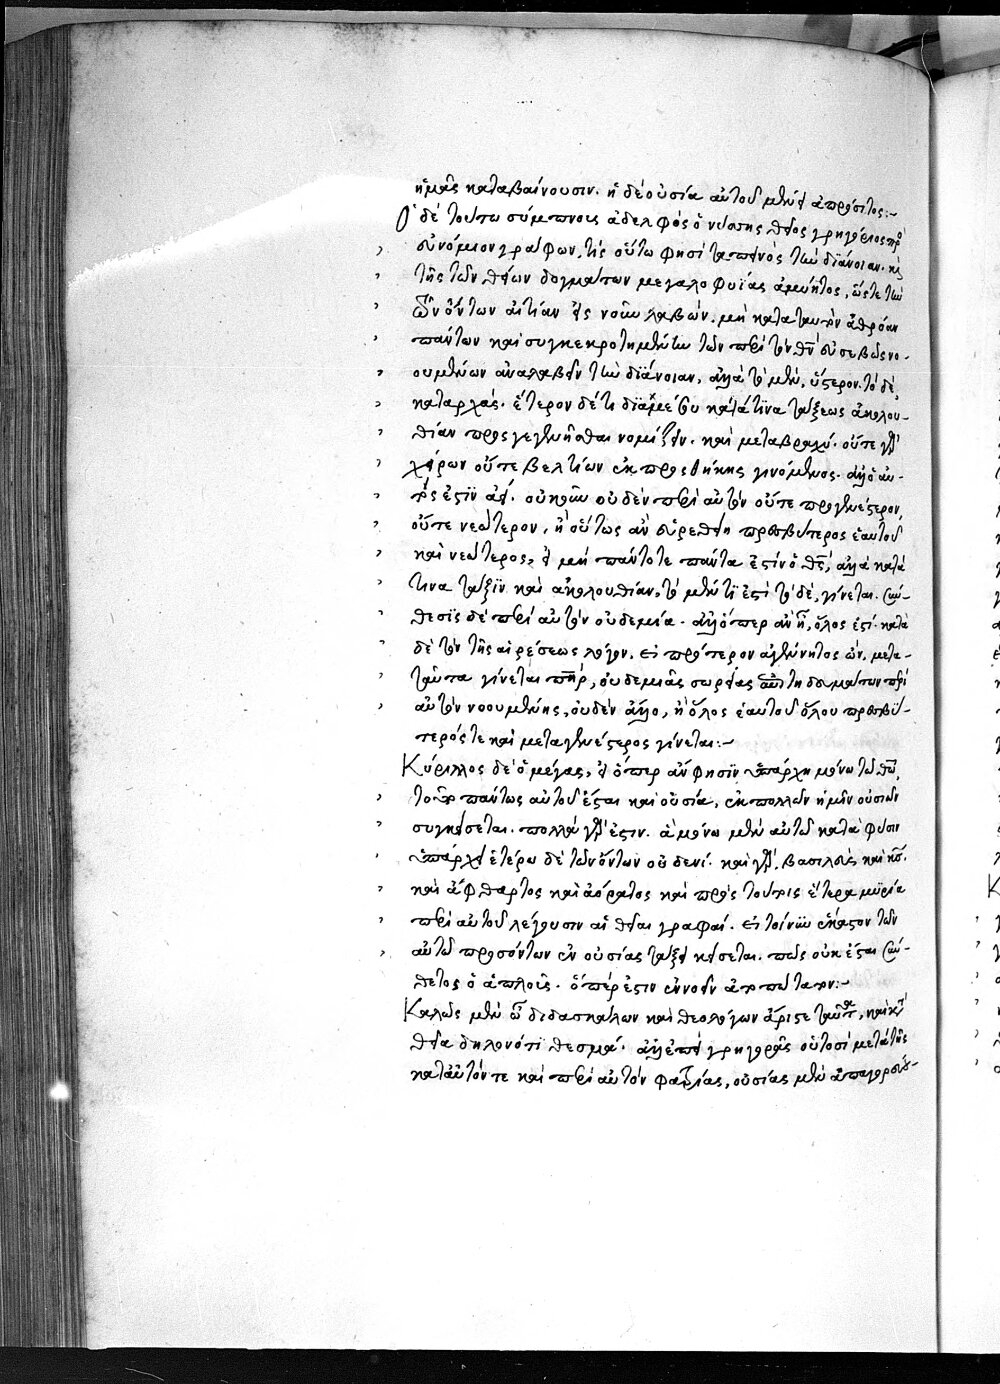 ἡμᾶς καταβαίνουσιν· ἡ δὲ οὐσία αὐτοῦ μένει ἀπρόσιτος:-
Ὁ δὲ τούτω σύμπνους ἀδελφὸς ὁ νύσσης θεῖος γρηγόριος πρὸς
εὐνόμιον γράφων, τίς οὕτω φησὶ ταπεινὸς τὴν διάνοιαν· καὶ
τῆς τῶν θείων δογμάτων μεγαλοφυΐας ἀμύητος, ὥστε τὴν
τῶν ὄντων αἰτίαν εἰς νοῦν λαβών, μὴ κατὰ ταυτὸν ἀθρόαν
πάντων καὶ συγκεκροτημένην τῶν περὶ τὸν θεὸν εὐσεβῶς νο-
ουμένων ἀναλαβεῖν τὴν διάνοιαν, ἀλλὰ τὸ μὲν, ὕστερον· τὸ δὲ,
καταρχάς· ἕτερον δέ τι διαμέσου κατά τινα τάξεως ἀκολου-
θίαν προσγεγενῆσθαι νομίζειν· καὶ μεταβραχύ· οὔτε γὰρ
χείρων οὔτε βελτίων ἐκ προσθήκης γινόμενος· ἀλλ' ὁ αὐ-
τός ἐστιν ἀεί· οὐκοῦν οὐδὲν περὶ αὐτὸν οὔτε προγενέστερον,
οὔτε νεώτερον, ἢ οὕτως ἂν εὑρεθείη πρεσβύτερος ἑαυτοῦ
καὶ νεώτερος, εἰ μὴ πάντοτε πάντα ἐστὶν ὁ θεός, ἀλλὰ κατά
τινα τάξιν καὶ ἀκολουθίαν, τὸ μέν τι ἐστὶ τὸ δὲ, γίνεται· σύν-
θεσις δὲ περὶ αὐτὸν οὐδεμία· ἀλλ' ὅπερ ἂν ᾖ, ὅλος ἐστί· κατὰ
δὲ τὸν τῆς αἱρέσεως λόγον, εἰ πρότερον ἀγέννητος ὢν, μετα-
ταῦτα γίνεται πατὴρ, οὐδεμιᾶς σωρείας περὶ
αὐτὸν νοουμένης, οὐδὲν ἄλλο, ἢ ὅλος ἑαυτοῦ ὅλου πρεσβύ-
τερός τε καὶ μεταγενέστερος γίνεται:-
Κύριλλος δὲ ὁ μέγας, εἰ ὅπερ ἂν φησὶν ὑπάρχη μόνω τῶ θεῶ,
τοῦτο πάντως αὐτοῦ ἔσται καὶ οὐσία, ἐκ πολλῶν ἡμῖν οὐσιῶν
συγκείσεται· πολλὰ γάρ ἐστιν· ἃ μόνω μὲν αὐτῶ κατὰ φύσιν
ὑπάρχει ἑτέρω δὲ τῶν ὄντων οὐδενί· καὶ γὰρ, βασιλεὺς καὶ κύριος·
καὶ ἄφθαρτος καὶ ἀόρατος καὶ πρὸς τούτοις ἕτερα μυρία
περὶ αὐτοῦ λέγουσιν αἱ θεῖαι γραφαί· εἰ τοίνυν ἕκαστον τῶν
αὐτῶ προσόντων ἐν οὐσίας τάξει κείσεται· πῶς οὐκ ἔσται σύν-
θετος ὁ ἁπλοῦς· ὅπερ ἐστὶν ἐννοεῖν ἀτοπώτατον:-
Καλῶς μὲν οὖν διδασκάλων καὶ θεολόγων ἄριστε ταῦτα, καὶ κατὰ
θεῖα δηλονότι θεσμά· ἀλλ' ἐπεὶ γρηγορᾶς οὑτοσὶ μετὰ τῆς
κατ' αὐτόν τε καὶ περὶ αὐτὸν φατρίας, οὐσίας μὲν ἀπαγορεύ-